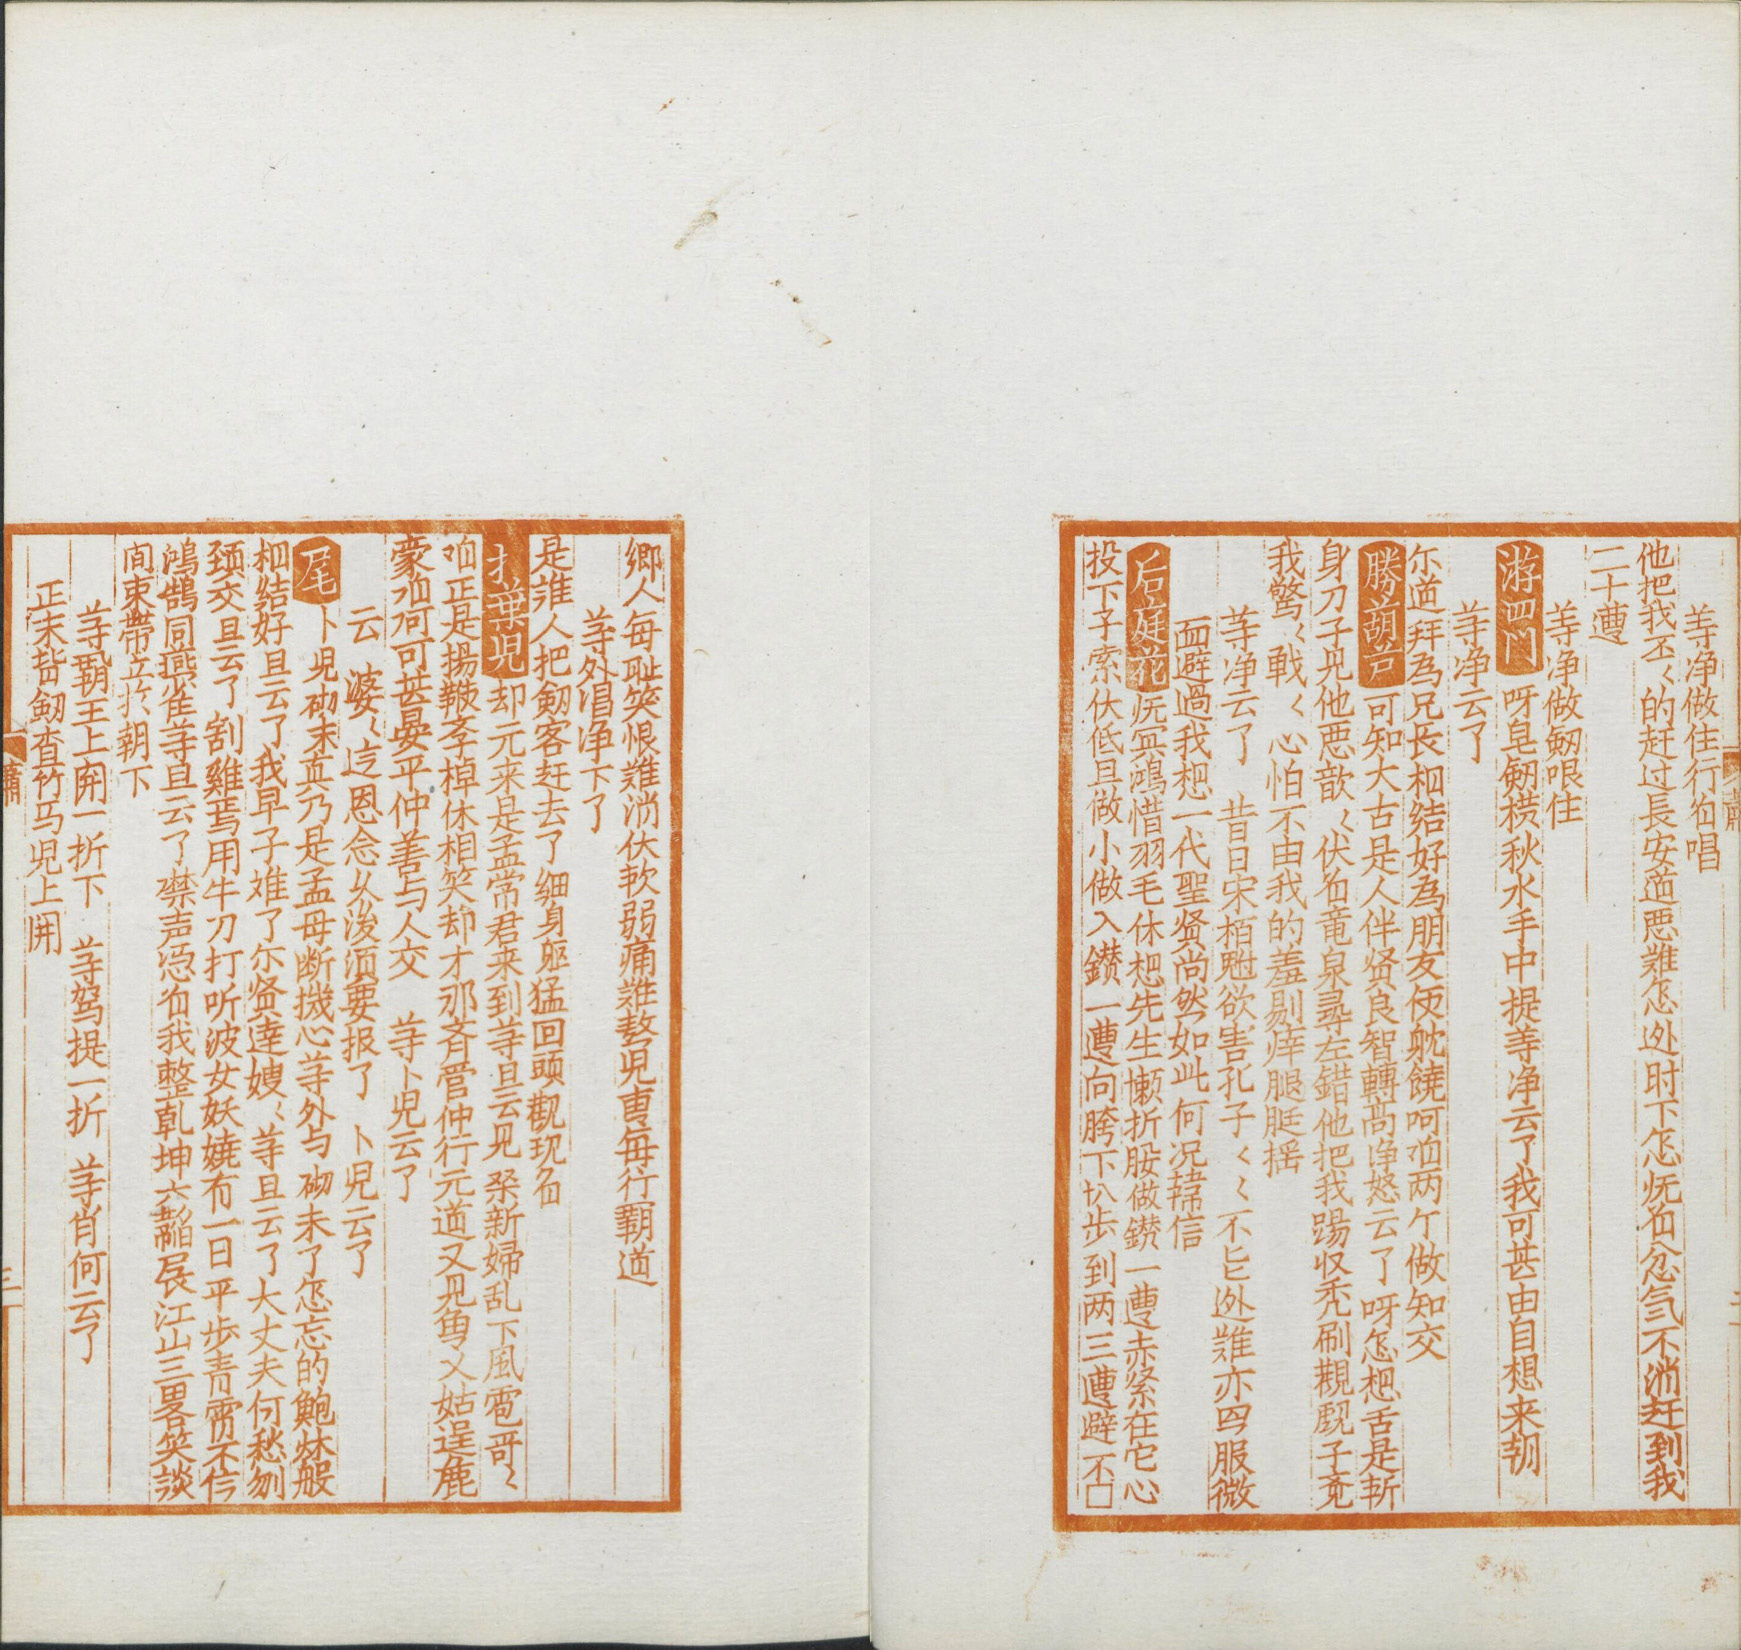 等净做住行㕥唱
他把我丕〻的赶过長安道恶難怎迯时下怎怃㕥忿気不消赶到我
二十遭
等净做劒哏住
游四門 呀皂劒横秋水手中提等净云了我可甚由自想来朝
等净云了
尔道拜為兄长相结好為朋友便躭饒呵咱两个做知交
勝葫芦 可知大古是人伴贤良智轉高净怒云了呀怎想舌是斩
身刀子見他恶歆〻伏㕥竜泉尋左錯他把我踢収秃刷觀覷子竟
我驚〻戰〻心怕不由我的羞剔痒腿脡摇
等净云了 昔日宋栢魋欲害孔子〻〻不匕迯難亦四服微
面避過我想一代聖贤尚然如此何况韓信
后庭花 怃冥鴻惜羽毛休想先生懒折腰做鐟一遭赤紧在它心
投下子索伏低且做小做入鐟一遭向胯下扒步到两三遭避不口
鄉人每耻笑恨難消伏軟弱痛難熬児曹每行覇道
等外湼净下了
是誰人把劒客赶去了细身躯猛回頭觀現㕥
扌葉児 却元来是孟常君来到等旦云見桑新婦乱下風雹哥〻
咱正是揚鞭李棹休相笑却才那斉管仲行元道又見鱼乂姑逞鹿
豪咱何可甚晏平仲善与人交 等卜児云了
云 婆〻这恩念久後湏要报了 卜児云了
尾 卜児砌末真乃是孟母断機心等外与砌末了怎忘的鮑叔般
相结好旦云了我早子难了尔贤達嫂〻等旦云了大丈夫何愁刎
頚交旦云了割雞焉用牛刀打听波女妖嬈有一日平歩青霄不信
鸿鵠同燕雀等旦云了噤声凭㕥我整乹坤六韜展江山三畧笑談
间束帶立扵朝下
等覇王上開一折下 等驾提一折 等肖何云了
正末背劒查竹马児上開